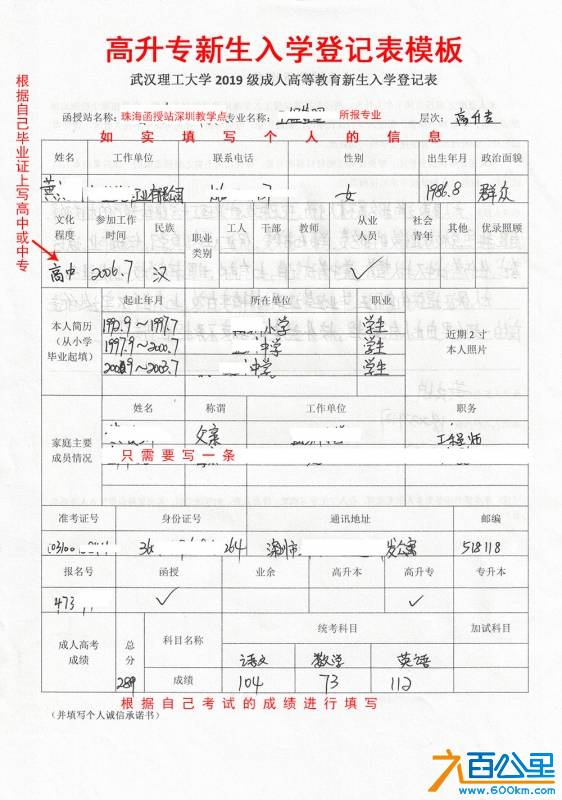 高升专新生入学登记表模板
武汉理工大学 2019 级成人高等教育新生入学登记表
函授站名称: 珠海函授站深圳教学点 专业名称: 所报专业 层次: 高升专
如实填写个人的信息
根据自己毕业证上写高中或中专
姓名 工作单位 联系电话 性别 出生年月 政治面貌
黄 有限公司 女 1986.8 群众
文化程度 参加工作时间 民族 职业类别 工人 干部 教师 从业人员 社会青年 其他 优录照顾
高中 2006.7 汉 ✓
本人简历(从小学毕业起填) 起止年月 所在单位 职业 近期 2 寸本人照片
1992.9~1997.7 小学 学生
1997.9~2000.7 中学 学生
2000.9~2003.7 中学 学生
家庭主要成员情况 姓名 称谓 工作单位 职务
父亲 工程师
只需要写一条
准考证号 身份证号 通讯地址 邮编
36 264 深圳市 公寓 518118
报名号 函授 业余 高升本 高升专 专升本
473 ✓ ✓
成人高考成绩 总分 科目名称 统考科目 加试科目
语文 数学 英语
289 成绩 104 73 112
根据自己考试的成绩进行填写
(并填写个人诚信承诺书)
六百公里
www.600km.com